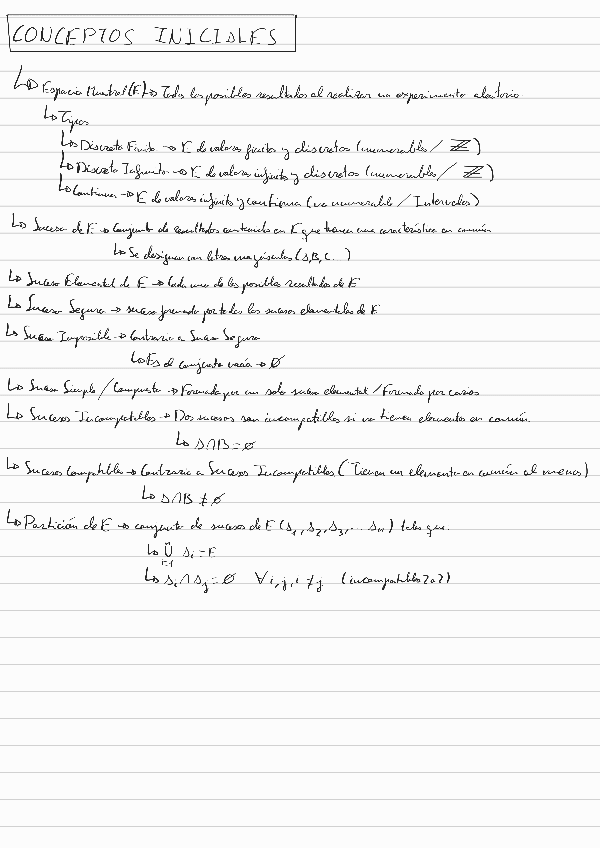 CONCEPTOS INICIALES
↳ Espacio Muestral (E) → Todos los posibles resultados al realizar un experimento aleatorio.
↳ Tipos
↳ Discreto Finito → E de valores finitos y discretos (numerables / ℤ)
↳ Discreto Infinito → E de valores infinitos y discretos (numerables / ℤ)
↳ Continuo → E de valores infinitos y continuo (no numerable / Intervalos)
↳ Suceso de E → Conjunto de resultados contenido en E que tienen una característica en común
↳ Se designan con letras mayúsculas (A, B, C...)
↳ Suceso Elemental de E → Cada uno de los posibles resultados de E
↳ Suceso Seguro → suceso formado por todos los sucesos elementales de E
↳ Suceso Imposible → Contrario a Suceso Seguro
↳ Es el conjunto vacío → ∅
↳ Suceso Simple / Compuesto → Formado por un solo suceso elemental / Formado por varios
↳ Sucesos Incompatibles → Dos sucesos son incompatibles si no tienen elementos en común.
↳ A∩B = ∅
↳ Sucesos Compatibles → Contrario a Sucesos Incompatibles (Tienen un elemento en común al menos)
↳ A∩B ≠ ∅
↳ Partición de E → conjunto de sucesos de E (A₁, A₂, A₃, ... Aₙ) tales que.
↳ ⋃ⁿᵢ₌₁ Aᵢ = E
↳ Aᵢ ∩ Aⱼ = ∅ ∀ i, j, i ≠ j (incompatibles 2 a 2)